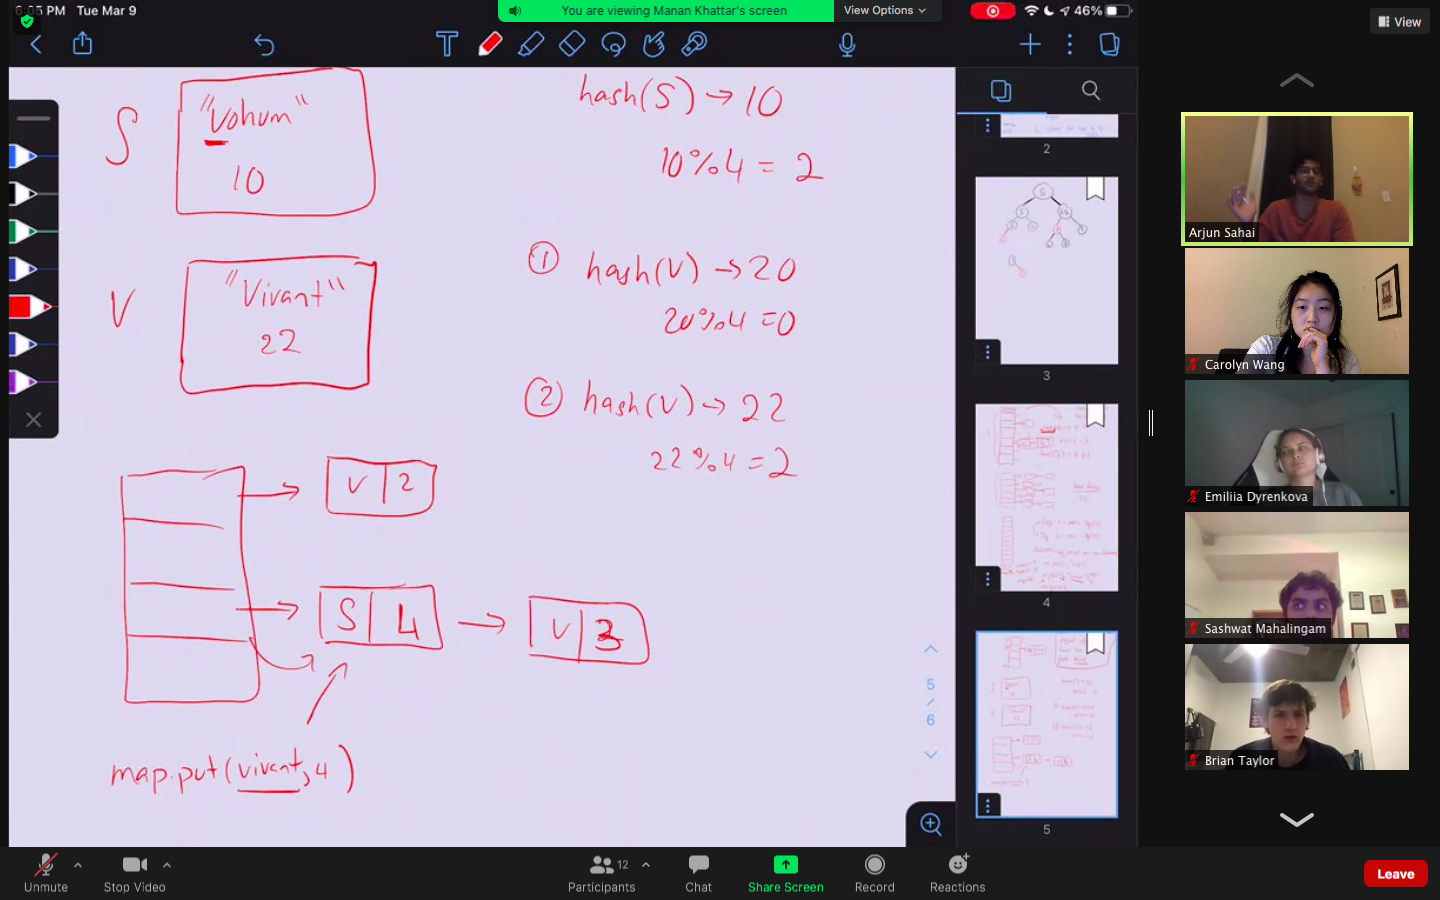 6:05 PM Tue Mar 9
You are viewing Manan Khattar's screen
View Options
46%
View
S
"Vohum"
10
hash(S) → 10
10%4 = 2
V
"Vivant"
22
① hash(V) → 20
20%4 = 0
② hash(V) → 22
22%4 = 2
V 2
S 4
V 3
map.put(vivant, 4)
2
3
4
5
5
/
6
Arjun Sahai
Carolyn Wang
Emiliia Dyrenkova
Sashwat Mahalingam
Brian Taylor
Unmute
Stop Video
Participants
12
Chat
Share Screen
Record
Reactions
Leave